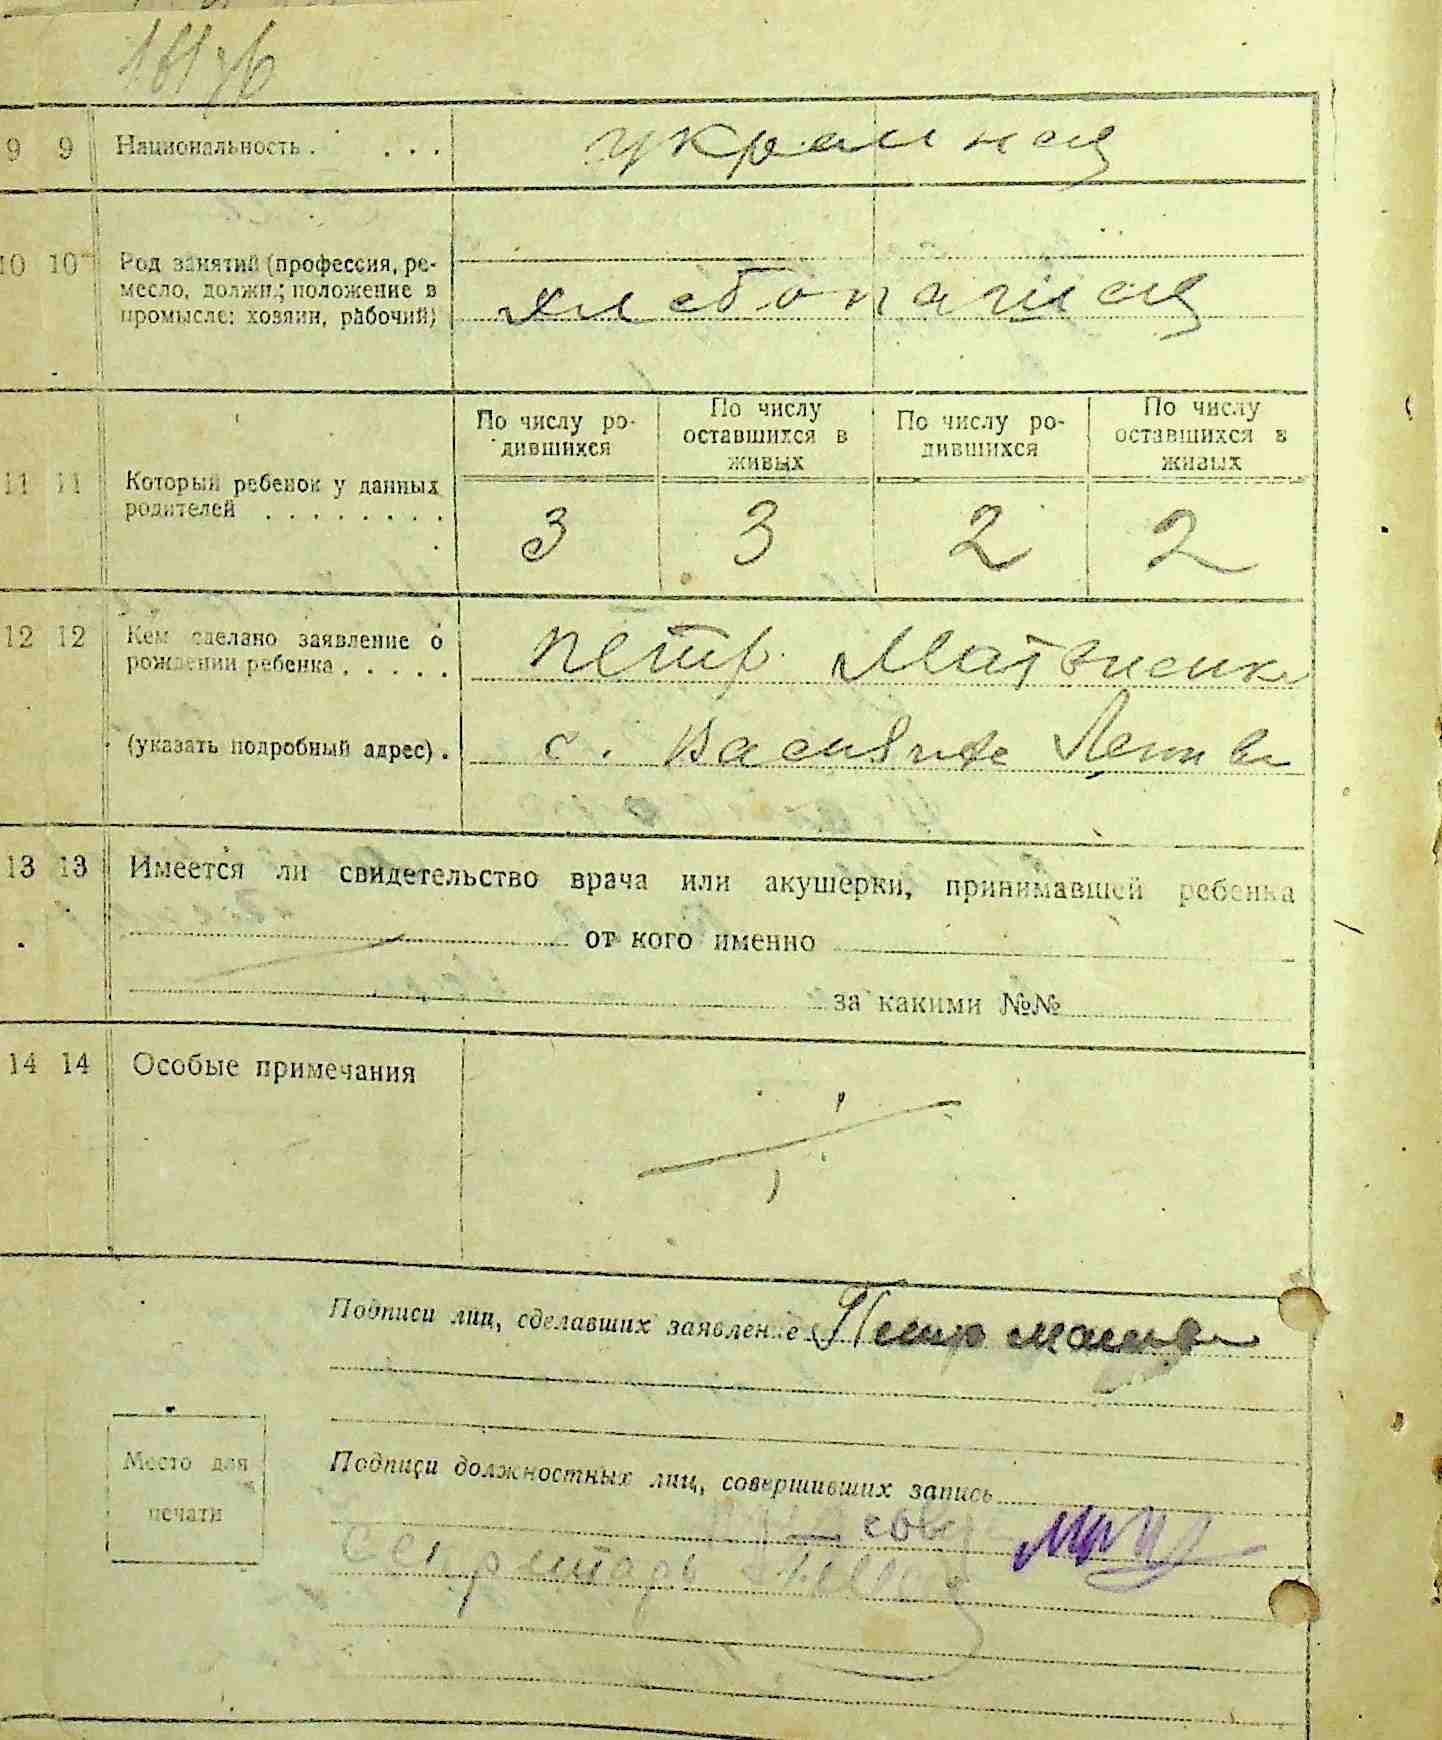 9 9 Национальность . . . . украинец
10 10 Род занятий (профессия, ре-
месло, должн.; положение в
промысле: хозяин, рабочий) хлебопашец
По числу ро-
дившихся
По числу
оставшихся в
живых
По числу ро-
дившихся
По числу
оставшихся в
живых
11 11 Который ребенок у данных
родителей . . . . . . . .
3 3 2 2
12 12 Кем сделано заявление о
рождении ребенка . . . . . Петр Матвиенк
(указать подробный адрес) . с.
13 13 Имеется ли свидетельство врача или акушерки, принимавшей ребенка
от кого именно
за какими №№
14 14 Особые примечания
Подписи лиц, сделавших заявление Петр
Место для
печати
Подписи должностных лиц, совершивших запись
секретарь